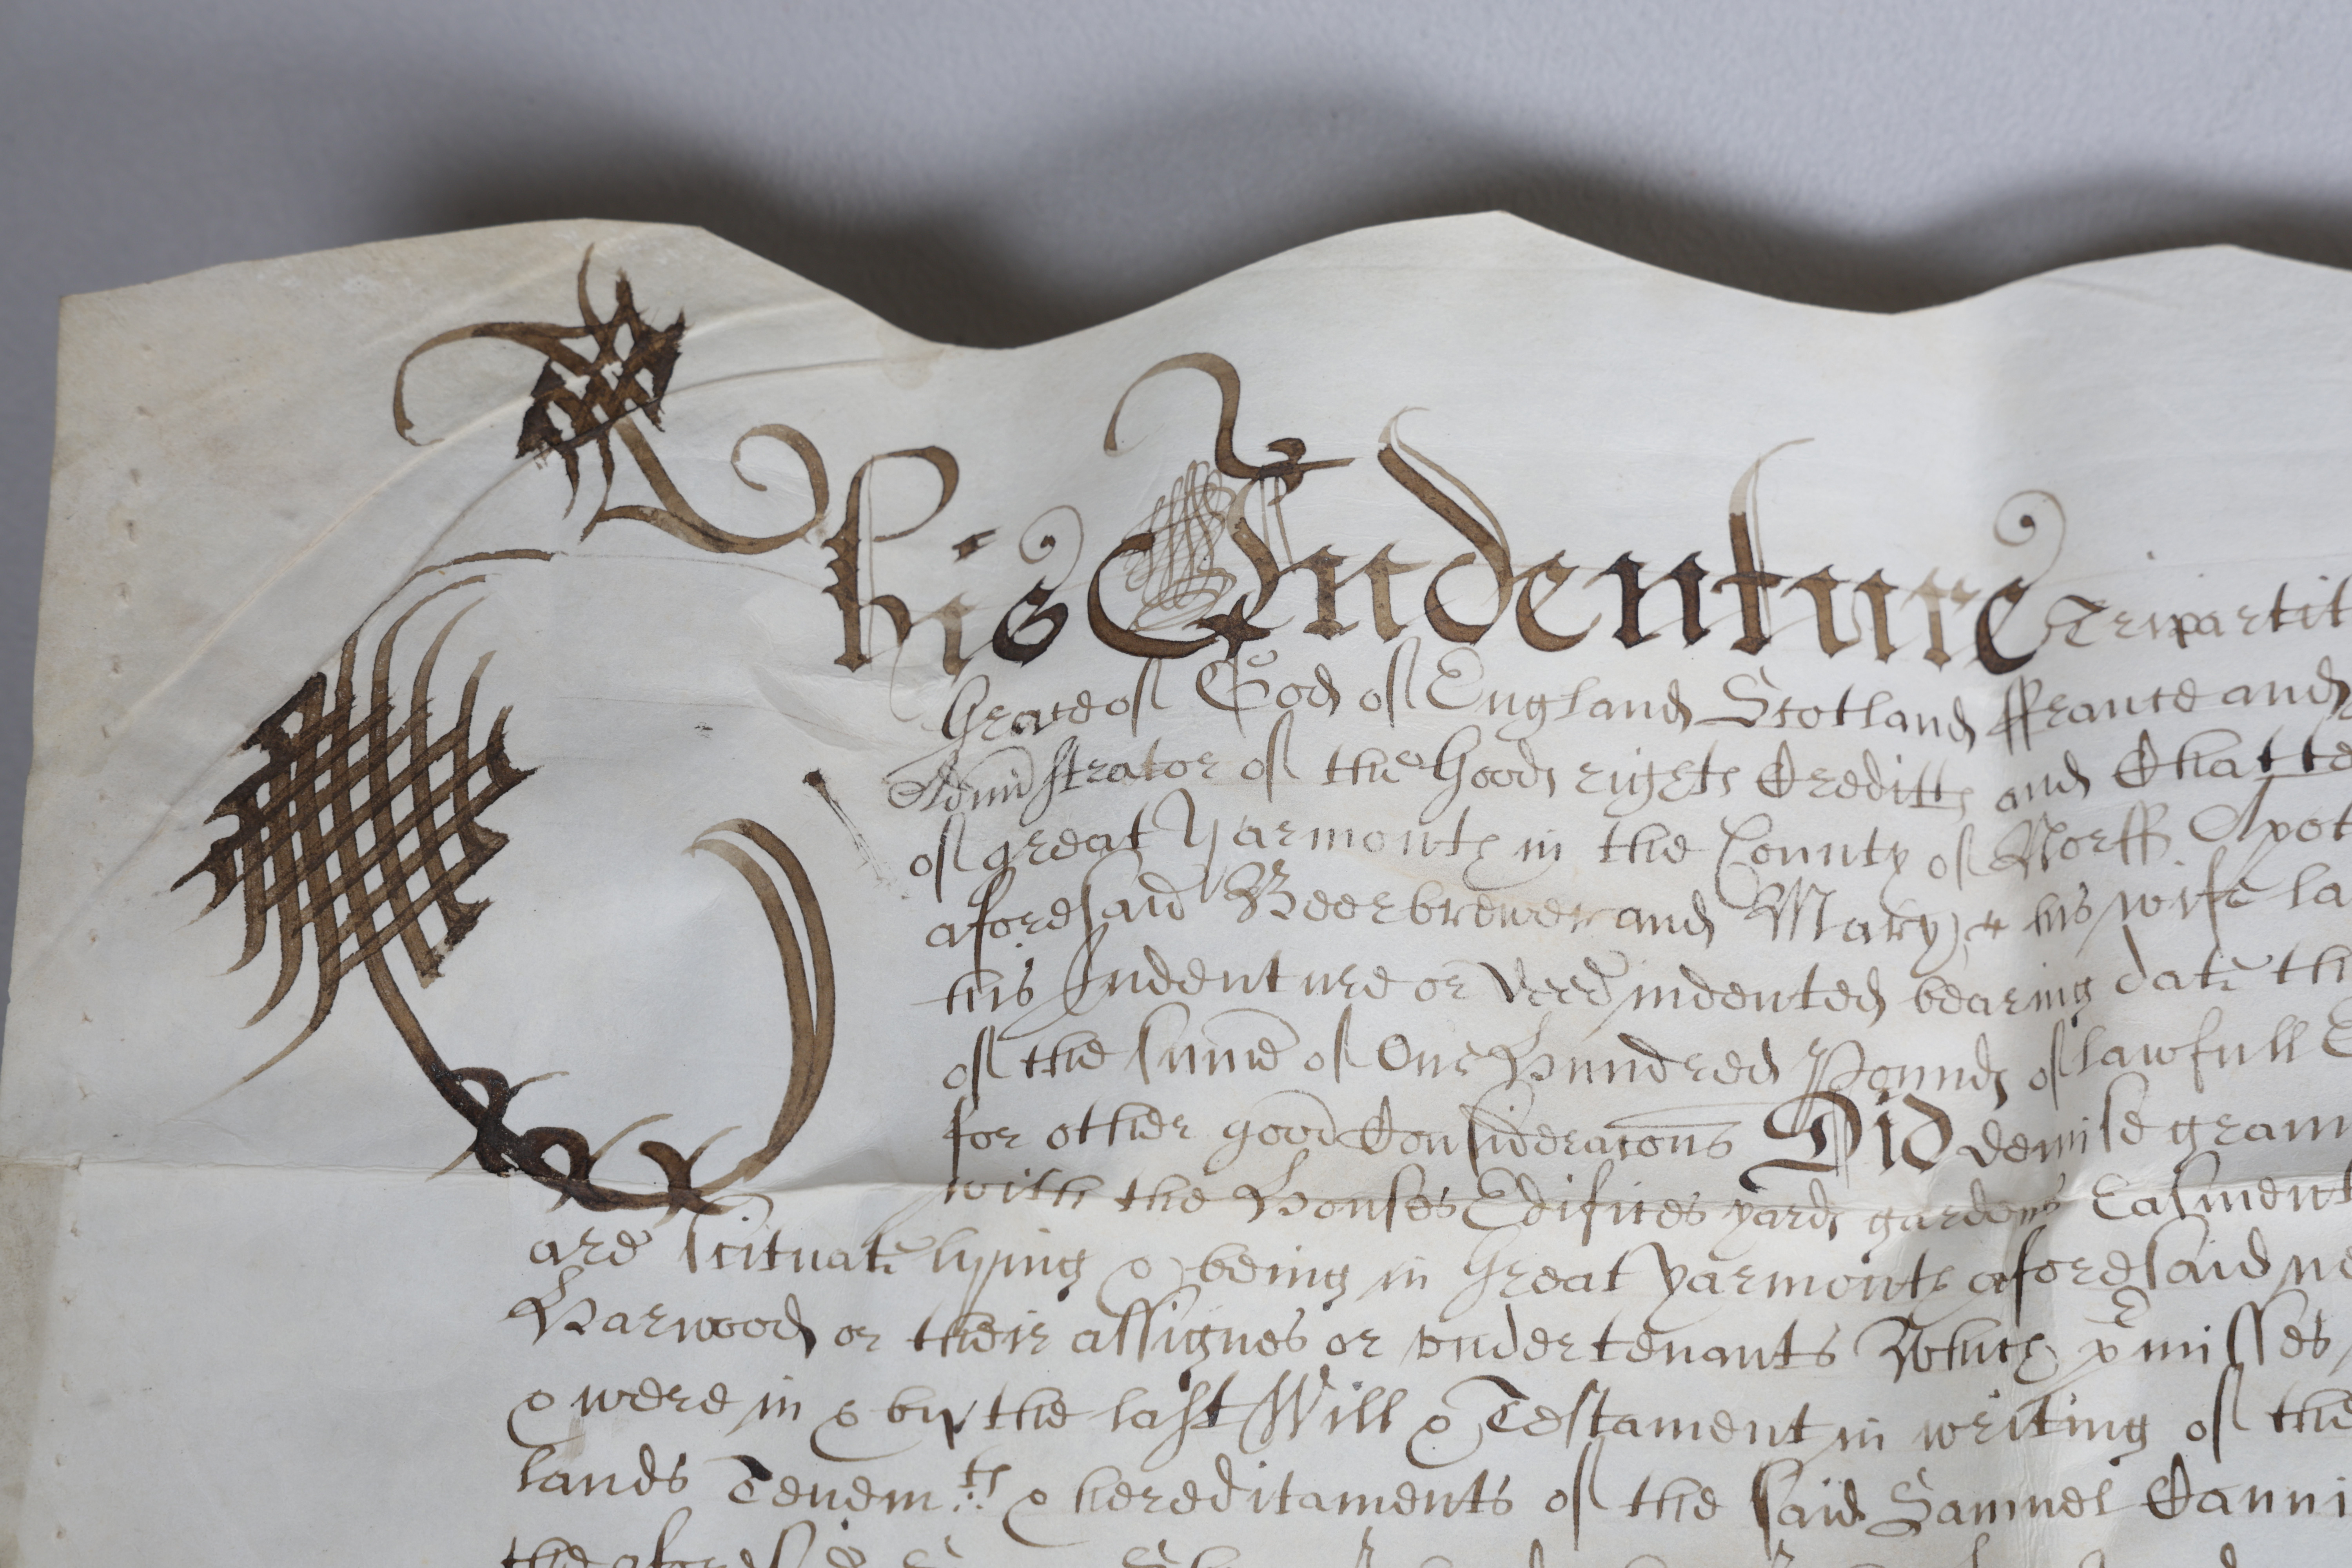 This Indenture Tripartit
Grace of God of England Scotland ffrance and
Administrator of the Goods rights Creditts and Chatte
of great Yarmouth in the County of Norff Apot
aforesaid Beerbrewer and Mary his wife la
this Indenture or deed indented bearing date th
of the sume of One Hundred Pounds of lawfull E
for other good Consideracons Did demise graun
with the Houses Edifices yards gardens Easment
are scituate lying & being in Great Yarmouth aforesaid ne
Harwood or their assignes or undertenants Which pmisses
& were in & by the last Will & Testament in writing of the
lands Tenemts & hereditaments of the said Samuel Canni